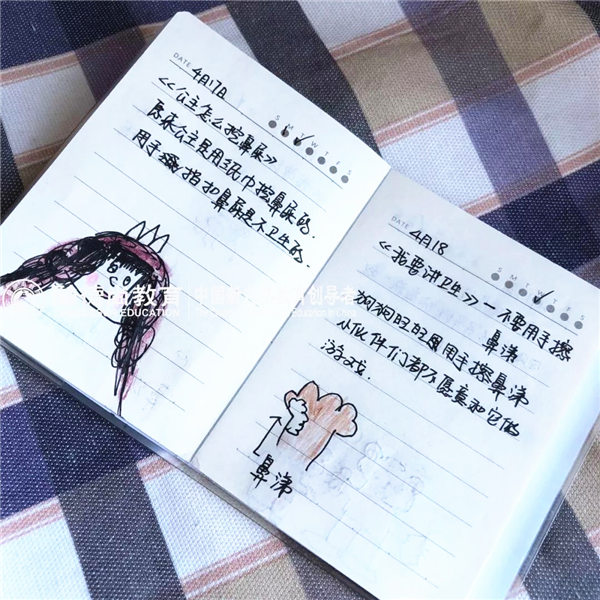 DATE 4月17日
S M T W T F S
《公主怎么挖鼻屎》
原来公主是用纸巾挖鼻屎的.
用手指扣鼻屎是不卫生的.
DATE 4月18
S M T W T F S
《我要讲卫生》一不要用手擦
鼻涕
狗狗旺旺因用手擦鼻涕
小伙伴们都不愿意和它做
游戏.
鼻涕
教育
EDUCATION